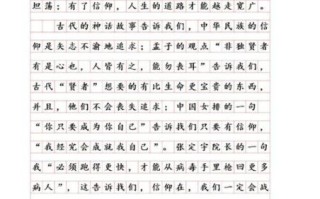 坦荡；有了信仰，人生的道路才能越走宽广。
古代的神话故事告诉我们，中华民族的信
仰是矢志不渝地追求；孟子的观点“非独贤者
有是心也，人皆有之，能勿丧耳”告诉我们，
古代“贤者”想要的有比生命更宝贵的东西，
并且，他们不会丧失追求；中国女排的一句
“你只要成为你自己”告诉我们只要有信仰，
“我经究会成就我自己”。张定宇院长的一句
我“必须跑得更快，才能从病毒手里抢回更多
病人”，这告诉我们，信仰在，我们一定会战